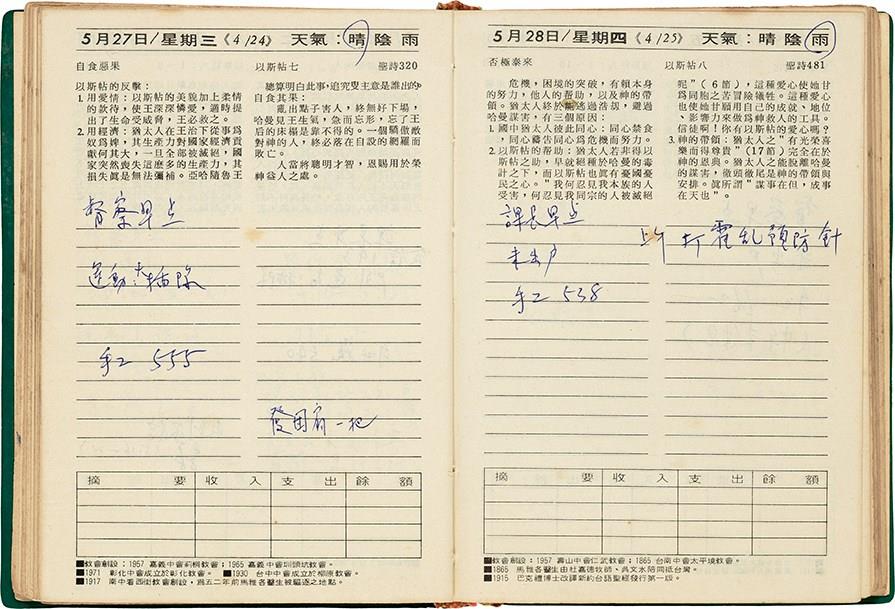 5月27日/星期三《4/24》 天氣：晴 陰 雨
自食惡果 以斯帖七 聖詩320
以斯帖的反擊：
1. 用愛情：以斯帖的美貌加上柔情
的款待，使王深深憐愛，適時提
出了生命受威脅，王必救之。
2. 用經濟：猶太人在王治下從事爲
奴爲婢，其生產力對國家經濟貢
獻何其大，一旦全部被滅絕，國
家突然喪失這麼多的生產力，其
損失眞是無法彌補。亞哈隨魯王
總算明白此事，追究叟主意是誰出的。
自食其果：
亂出點子害人，終無好下場，
哈曼見王生氣，急而忘形，忘了王
后的床榻是靠不得的。一個驕傲敵
對神的人，終必落在自設的網羅而
敗亡。
人當將聰明才智，恩賜用於榮
神益人之處。
督察早点
運動 插隊
手工 555
發困扇一把
摘 要 收 入 支 出 餘 額
■教會創設：1957 嘉義中會莿桐教會；1965 嘉義中會圳頭坑教會。
■1971 彰化中會成立於彰化教會。 ■1930 台中中會成立於柳原教會。
■1917 南中看西街教會創設，爲五二年前馬雅各醫生被驅逐之地點。
5月28日/星期四《4/25》 天氣：晴 陰 雨
否極泰來 以斯帖八 聖詩481
危機，困境的突破，有賴本身
的努力，他人的幫助，以及神的帶
領。猶太人終於逃過浩劫，避過
哈曼謀害，有三個原因：
1. 國中猶太人彼此同心：同心禁食
，同心禱告同心爲危機而努力。
2. 以斯帖的幫助：猶太人若非得以
斯帖之助，早就絕種於哈曼的毒
計之下，而以斯帖也眞有憂國憂
民之心。"我何忍見我本族的人
受害，何忍見我同宗的人被滅絕
呢"（6節），這種愛心使她甘
爲同胞之苦，冒險犧牲。這種愛心
也使她甘願用自己的成就、地位
、影響力來做爲神救人的工具。
信徒啊！你有以斯帖之愛心嗎？
3. 神的帶領：猶太人"有光榮喜
樂而得尊貴"（17節）完全在於
神的恩典。猶太人之能脫離哈曼
的謀害，徹頭徹尾是神的帶領與
安排。眞所謂"謀事在神，成事
在天也"。
課長早点
未出戶
手工 538
上午打霍乱預防針
摘 要 收 入 支 出 餘 額
■教會創設：1957 壽山中會仁武教會；1865 台南中會太平境教會。
■1865 馬雅各醫生由杜嘉德牧師、吳文水陪同抵台灣。
■1915 巴克禮博士改譯新約台語聖經發行第一版。